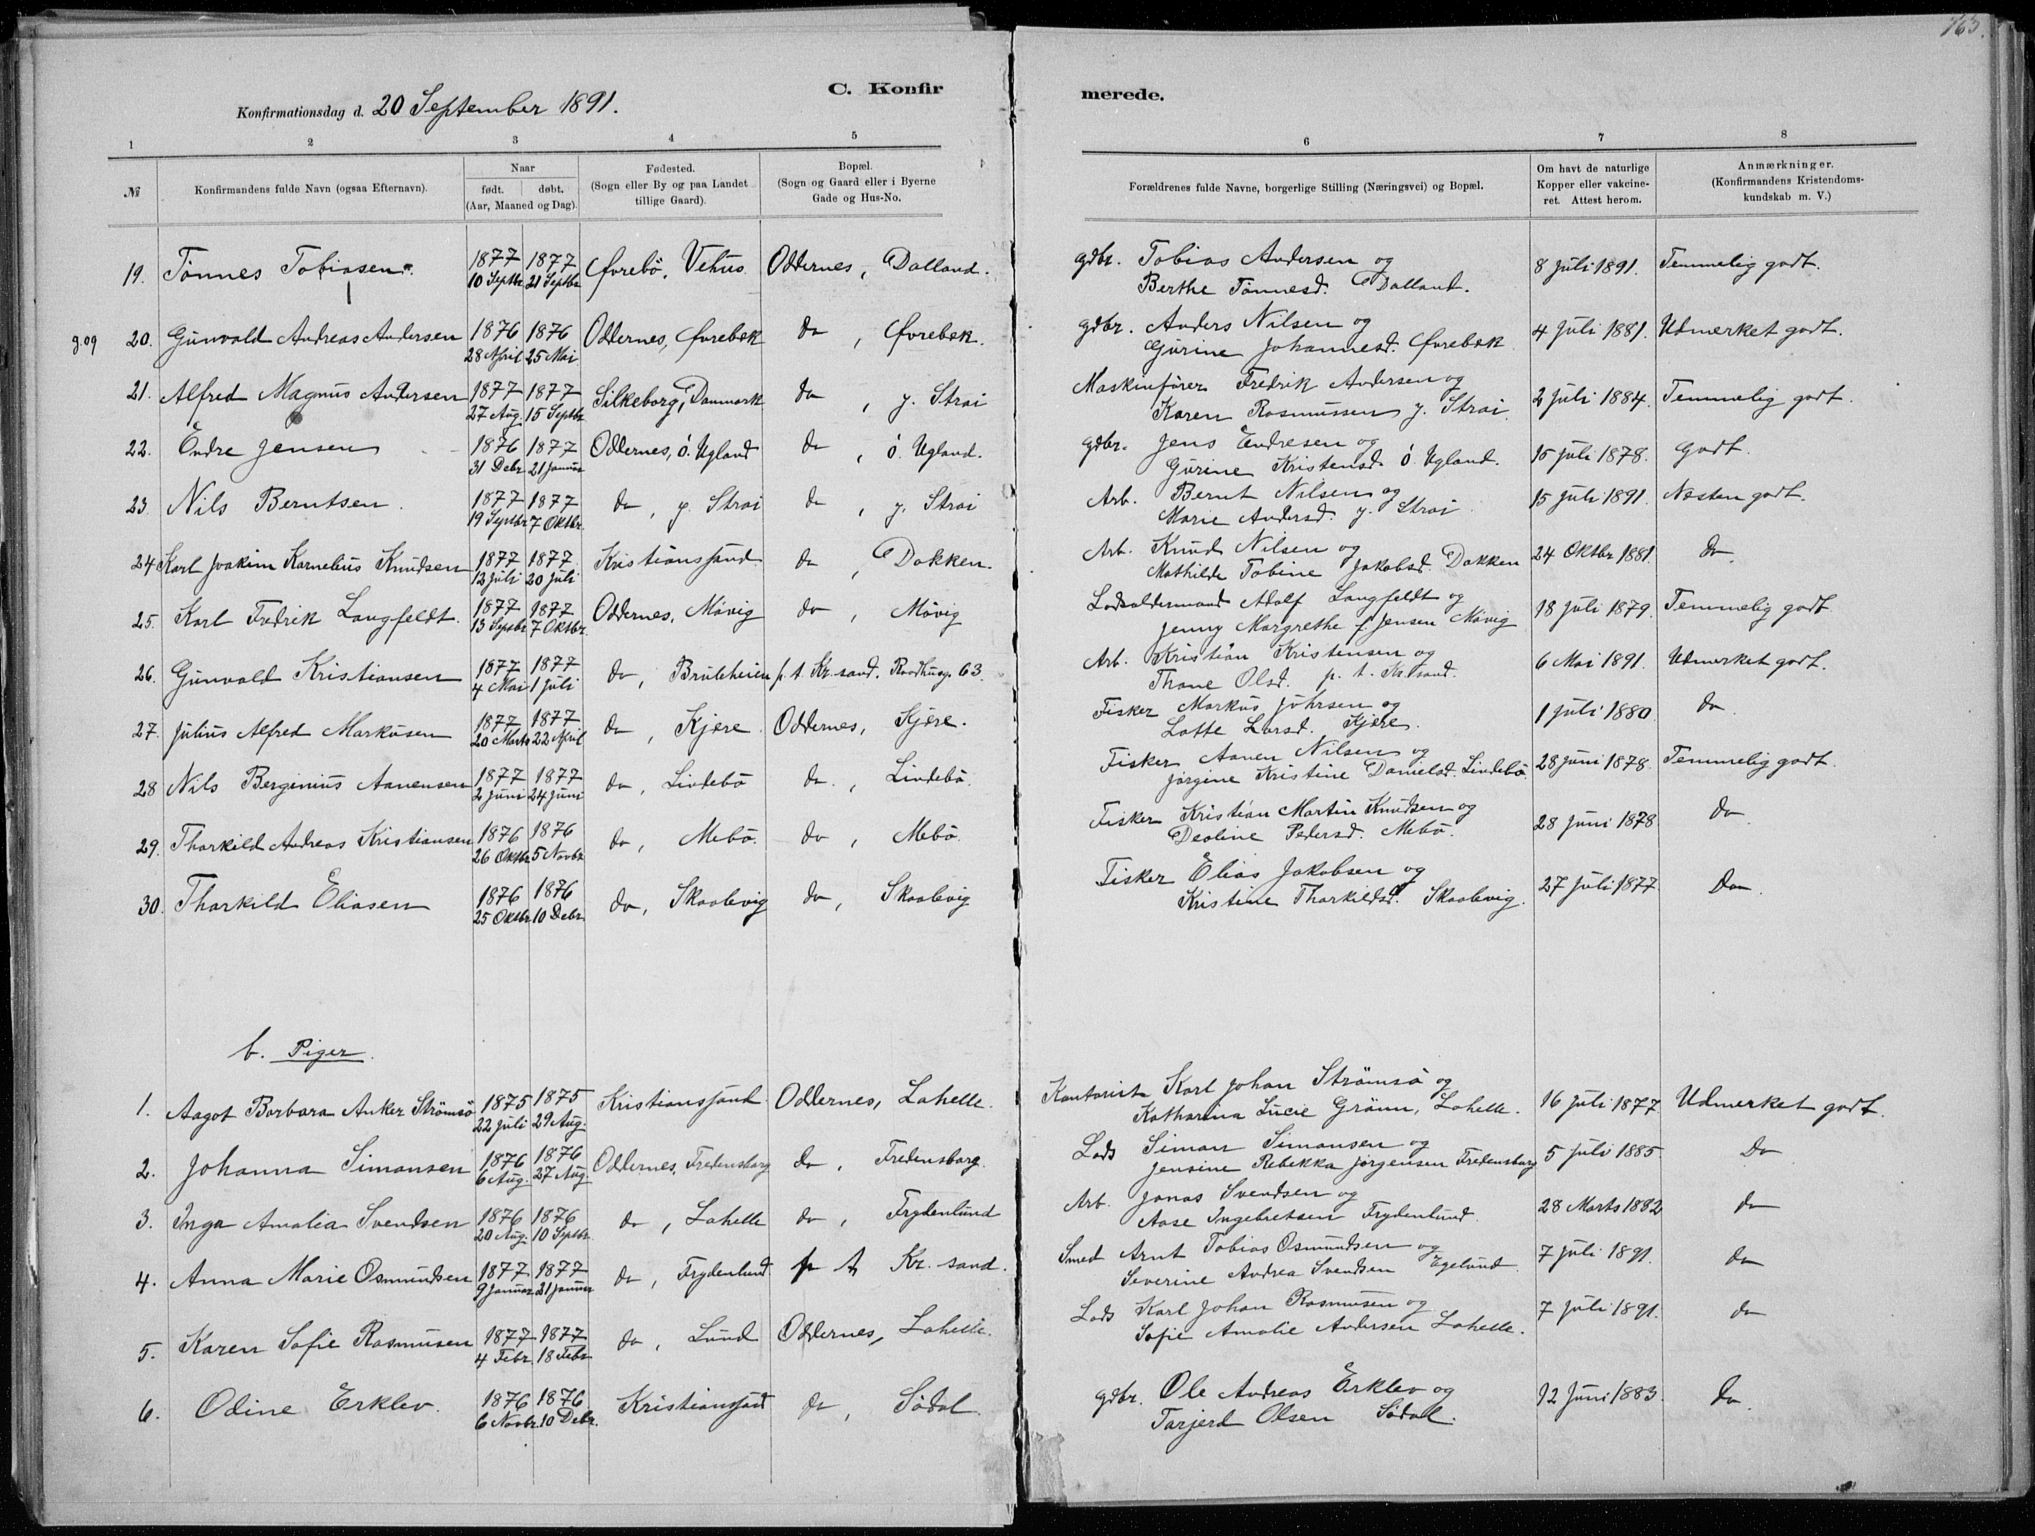 763.
C. Konfir merede.
Konfirmationsdag d. 20 September 1891.
1 2 3 4 5 6 7 8
№ Konfirmandens fulde Navn (ogsaa Efternavn). Naar født. døbt. (Aar, Maaned og Dag). Fødested. (Sogn eller By og paa Landet tillige Gaard). Bopæl. (Sogn og Gaard eller i Byerne Gade og Hus-No. Forældrenes fulde Navne, borgerlige Stilling (Næringsvei) og Bopæl. Om havt de naturlige Kopper eller vakcineret. Attest herom. Anmærkninger. (Konfirmandens Kristendomskundskab m. V.)
19. Tönnes Tobiasen. 1877 1877 Øvrebö, Vehus Oddernes, Dalland. gdbr. Tobias Andersen og 8 Juli 1891. Temmelig godt.
10 Septbr 21 Septbr Berthe Tönnesd. Dalland.
g.og 20. Gunvald Andreas Andersen 1876 1876 Oddernes, Øvrebæk do, Øvrebæk. gdbr. Anders Nilsen og 4 Juli 1881. Udmerket godt.
28 April 25 Mai Gurine Johannesd. Øvrebæk
21. Alfred Magnus Andersen 1877 1877 Silkeborg, Danmark do, y. Strai Maskinfører Fredrik Andersen og 2 Juli 1884. Temmelig godt.
27 Aug. 15 Septbr Karen Rasmussen y. Strai.
22. Endre Jensen 1876 1877 Oddernes, ö. Ugland do, ö. Ugland. gdbr. Jens Endresen og 15 Juli 1878. godt.
31 Debr. 21 Januar Gurine Kristensd. ö. Ugland.
23 Nils Berntsen. 1877 1877 do, y. Strai do, y. Strai Arb. Bernt Nilsen og 15 Juli 1891. Næsten godt.
19 Septbr 7 Oktbr. Marie Andersd. y. Strai.
24 Karl Joakim Kornelius Knudsen 1877 1877 Kristianssand do, Dokken. Arb. Knud Nilsen og 24 Oktbr 1881. do.
12 Juli 20 Juli Mathilde Tobine Jakobsd. Dokken
25. Karl Fredrik Langfeldt. 1877 1877 Oddernes, Mövig do, Mövig Lodsoldermand Adolf Langfeldt og 18 Juli 1879. Temmelig godt
13 Septbr 7 Oktbr. Jenny Margrethe f. Jensen Mövig
26. Gunvald Kristiansen 1877 1877 do, Bruleheien p. t. Kr.sand. Raadhusg. 63. Arb. Kristian Kristensen og 6 Mai 1891. Udmerket godt.
4 Mai 1 Juli Thone Olsd. p. t. Kr.sand.
27. Julius Alfred Markusen 1877 1877 do, Kjære Oddernes, Kjære. Fisker Markus Johrsen og 1 Juli 1880. do.
20 Marts 22 April Lotte Larsd. Kjære.
28 Nils Berginius Aanensen 1877 1877 do, Lindebö do., Lindebö. Fisker Aanen Nilsen og 28 Juni 1878. Temmelig godt.
2 Juni 24 Juni Jørgine Kristine Danielsd. Lindebö
29. Tharkild Andreas Kristiansen 1876 1876 do, Mebö. do, Mebö. Fisker Kristian Martin Knudsen og 28 Juni 1878 do
26 Oktbr. 5 Novbr Deoline Pedersd. Mebö.
30. Tharkild Eliasen 1876 1876 do, Skaalevig do, Skaalevig Fisker Elias Jakobsen og 27 Juli 1877 do.
25 Oktbr. 10 Debr. Kristine Tharkildsd. Skaalevig.
b. Piger.
1. Aagot Barbara Anker Strömsö 1875 1875 Kristianssand. Oddernes, Lahelle. Kontorist Karl Johan Strömsö og 16 Juli 1877 Udmerket godt.
22 Juli 29 Aug. Katharina Lucie Grönn, Lahelle.
2. Johanna Simonsen 1876 1876 Oddernes, Fredensborg do, Fredensborg. Lods Simon Simonsen og 5 Juli 1885 do
6 Aug. 27 Aug Jensine Rebekka Jørgensen Fredensborg
3. Inga Amalia Svendsen 1876 1876 do, Lahelle do, Frydenlund Arb. Jonas Svendsen og 28 Marts 1882 do
20 Aug. 10 Septbr. Aase Ingebretsen Frydenlund.
4. Anna Marie Osmundsen 1877 1877 do, Frydenlund p t. Kr. sand. Smed Arnt Tobias Osmundsen og 7 Juli 1891. do
9 Januar 21 Januar Severine Andrea Svendsen Egelund.
5. Karen Sofie Rasmusen 1877 1877 do, Lund Oddernes, Lahelle. Lods Karl Johan Rasmusen og 7 Juli 1891. do
4 Febr. 18 Febr Sofie Amalie Andersen Lahelle.
6. Odine Erklev. 1876 1876 Kristianssand do, Sødal. gdbr. Ole Andreas Erklev og 12 Juni 1883. do.
6 Novbr. 10 Debr. Tarjerd Olsen Södal.